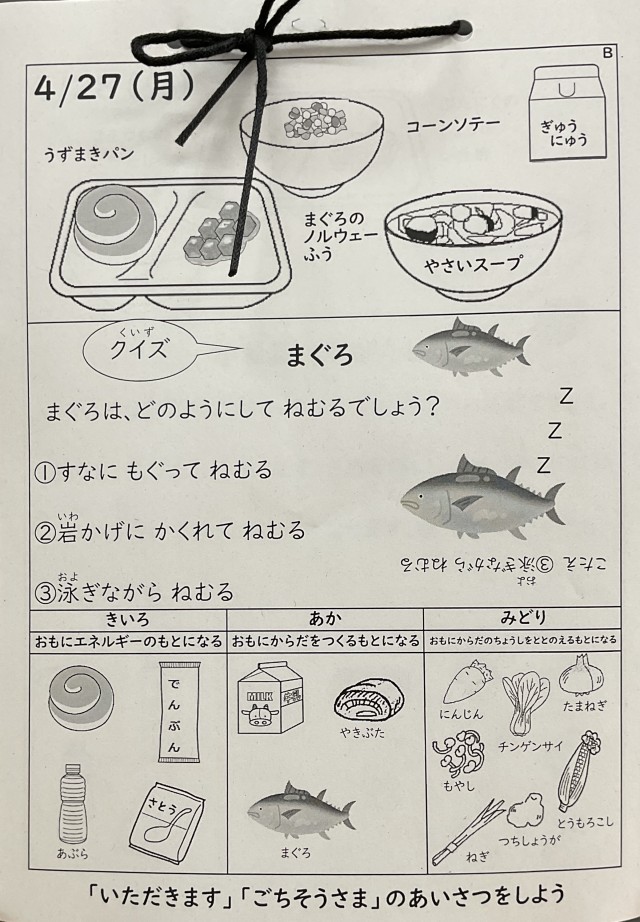 B
4/27(月)
うずまきパン
コーンソテー
ぎゅう
にゅう
まぐろの
ノルウェー
ふう
やさいスープ
くいず
クイズ
まぐろ
まぐろは、どのようにして ねむるでしょう?
Z
Z
Z
①すなに もぐって ねむる
いわ
②岩かげに かくれて ねむる
およ
③泳ぎながら ねむる
およ
こたえ ③泳ぎながら ねむる
きいろ
あか
みどり
おもにエネルギーのもとになる
おもにからだをつくるもとになる
おもにからだのちょうしをととのえるもとになる
でんぷん
MILK
牛乳
やきぶた
にんじん
チンゲンサイ
たまねぎ
もやし
とうもろこし
さとう
あぶら
まぐろ
ねぎ
つちしょうが
「いただきます」「ごちそうさま」のあいさつをしよう